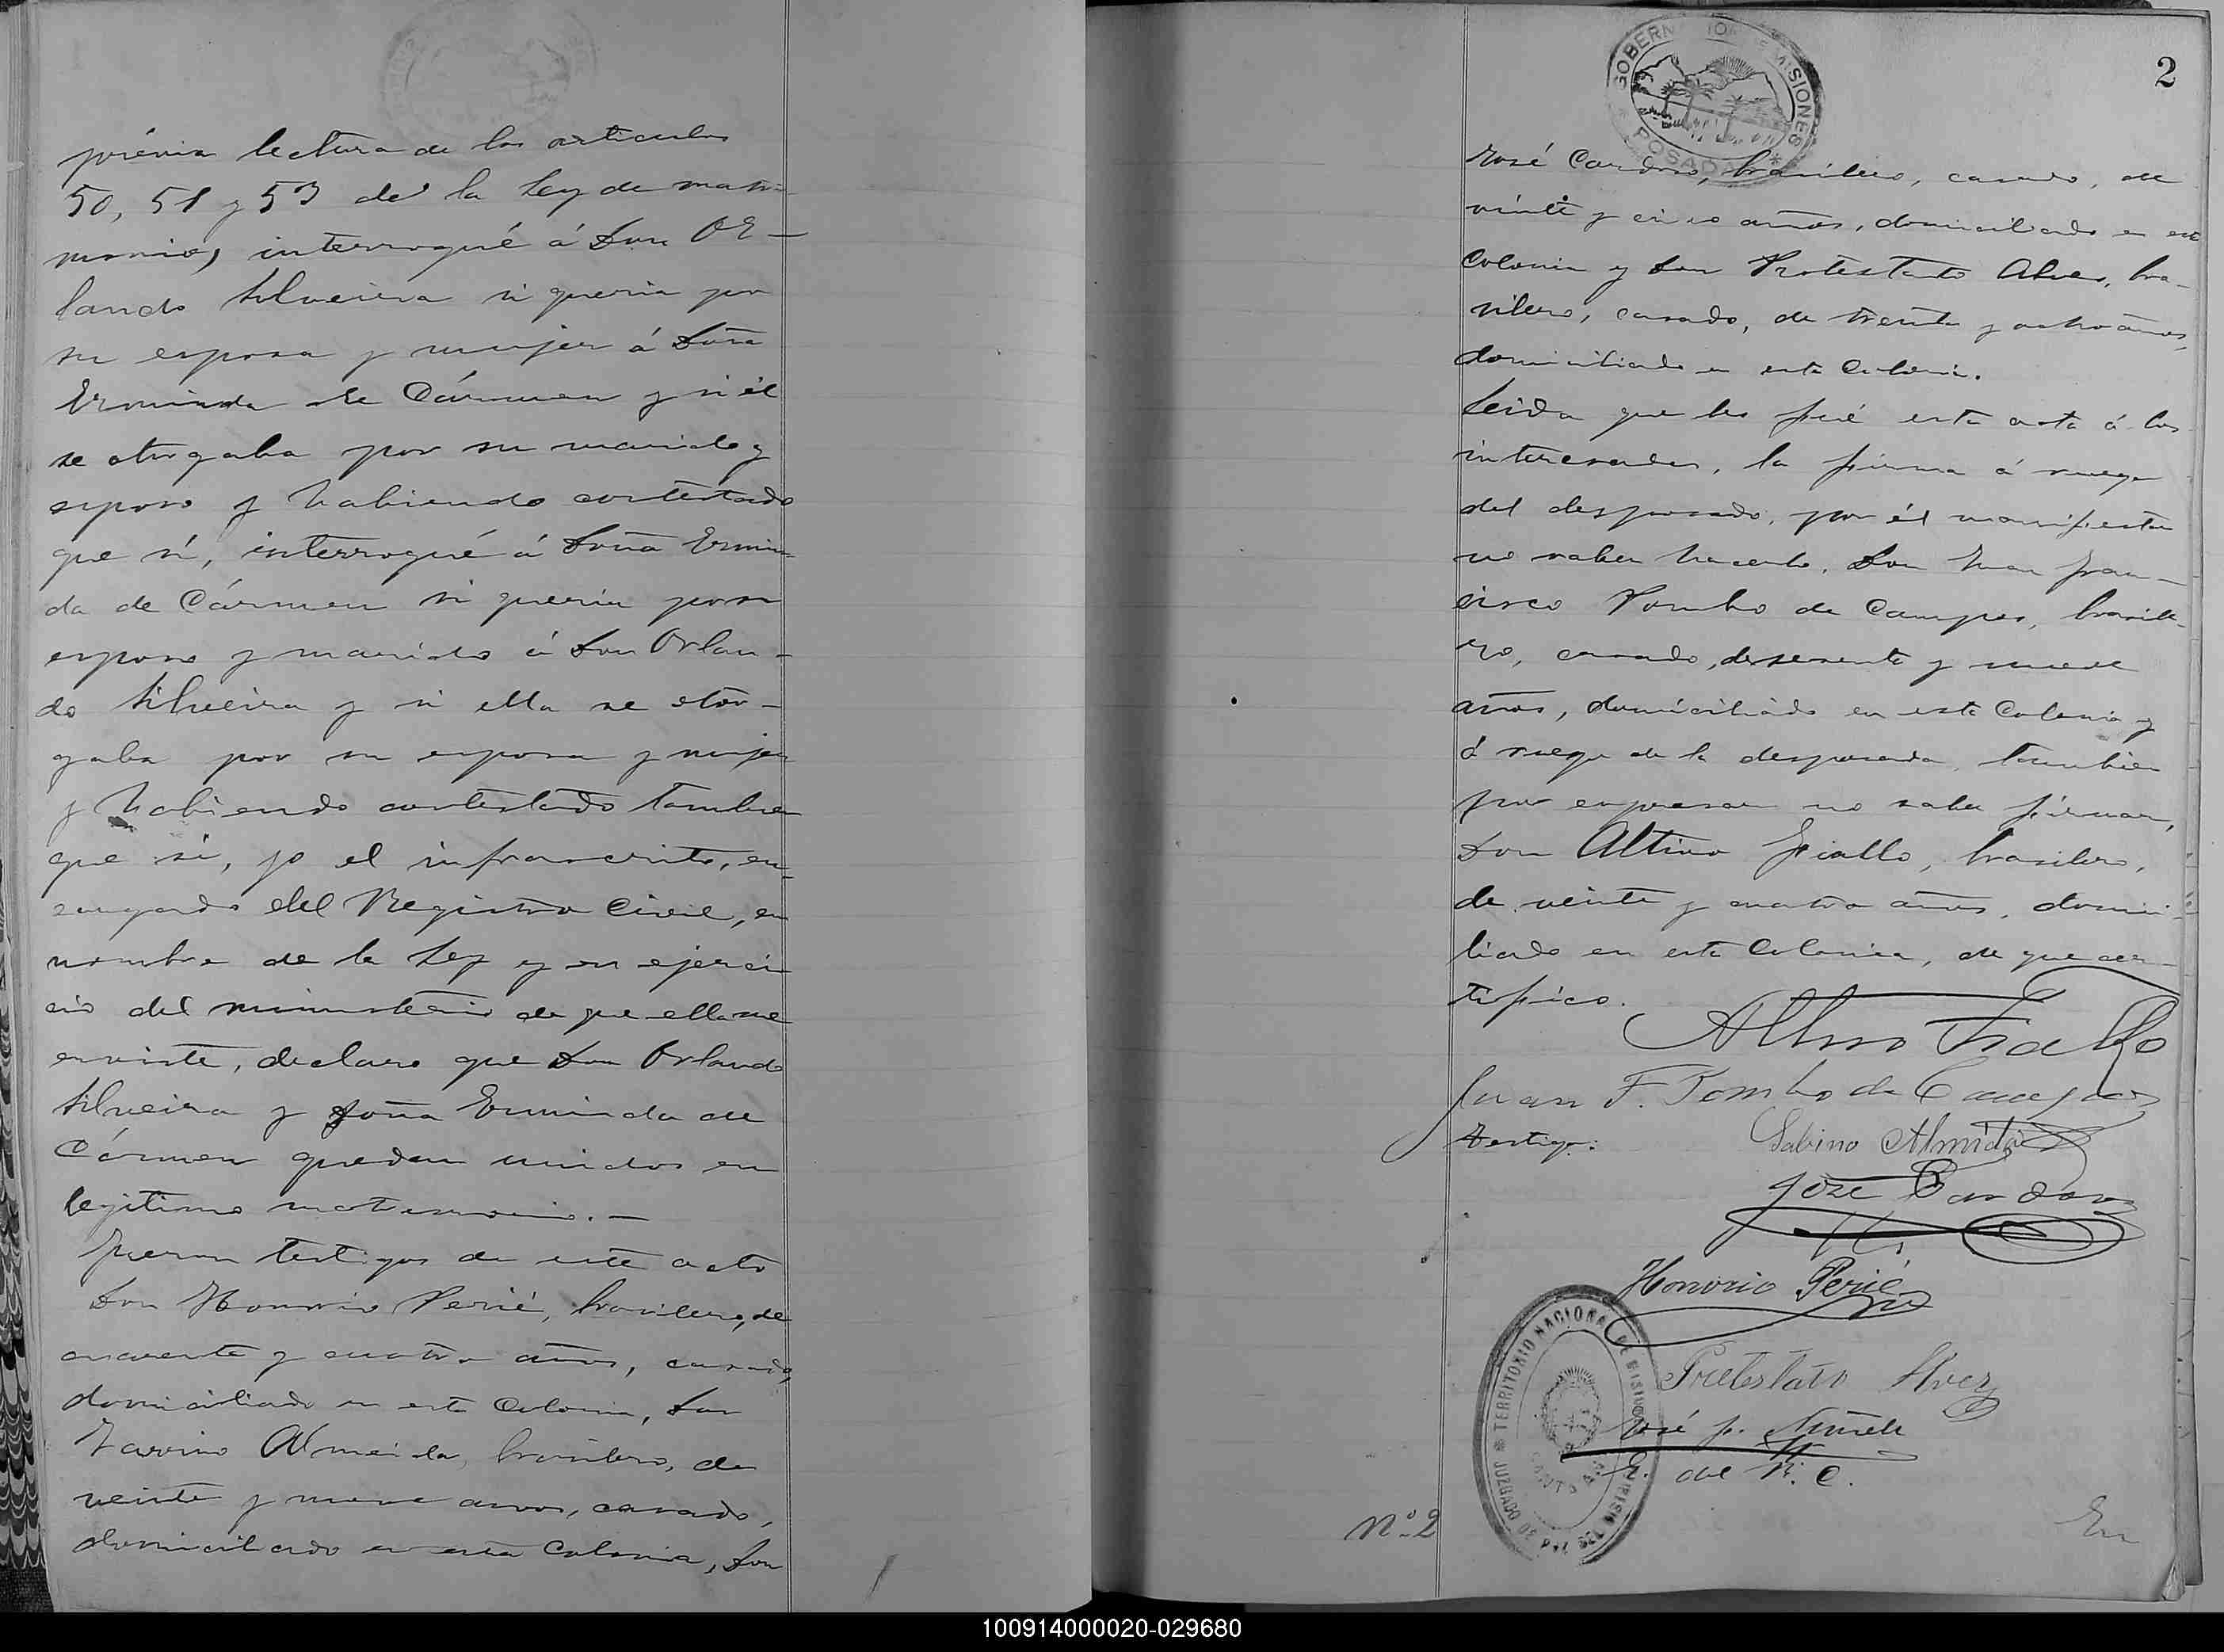 prévia lectura de los articulos
50, 51 y 53 de la Ley de matri-
monio, interrogué á Don Or-
lando Silveira si queria por
su esposa y mujer á Doña
Erminda de Cármen y si él
se otorgaba por su marido y
esposo y habiendo contestado
que si, interrogué á Doña Ermin-
da de Cármen si queria por su
esposo y marido á Don Orlan-
do Silveira y si ella se otor-
gaba por su esposa y mujer
y habiendo contestado tambien
que si, yo el infrascrito, en-
cargado del Registro Civil, en
nombre de la Ley y en ejerci-
cio del ministerio de que ella me
enviste, declaro que Don Orlando
Silveira y Doña Erminda de
Cármen quedan unidos en
legitimo matrimonio. —
Fueron testigos de este acto
Don Honorio Perié, brasilero, de
cuarenta y cuatro años, casado,
domiciliado en esta Colonia, Don
Almeida, brasilero, de
veinte y nueve años, casado,
domiciliado en esta Colonia, Don
GOBERNACION DE MISIONES
* POSADAS *
2
José Cardoso, brasilero, casado, de
veinte y cinco años, domiciliado en esta
Colonia y Don Protestato Alves, bra-
silero, casado, de treinta y ocho años,
domiciliado en esta Colonia.
Leida que les fué esta acta á los
interesados, la firma á ruego
del desposado, por él manifestar
no saber hacerlo, Don Juan Fran-
cisco Pombo de Campos, brasile-
ro, casado, de sesenta y nueve
años, domiciliado en esta Colonia y
á ruego de la desposada, tambien
por expresar no saber firmar,
Don Altino Fiallo, brasilero,
de veinte y cuatro años, domici-
liado en esta Colonia, de que cer-
tifico.
Altino Fiallo
Juan F. Pombo de Campos
Testigos: Sabino Almida
José Cardoso
Honorio Perié
Pretestato Alvez
José
E. del R. C.
JUZGADO TERRITORIO NACIONAL DE MISIONES
SANTA ANA
Nº 2
En
100914000020-029680